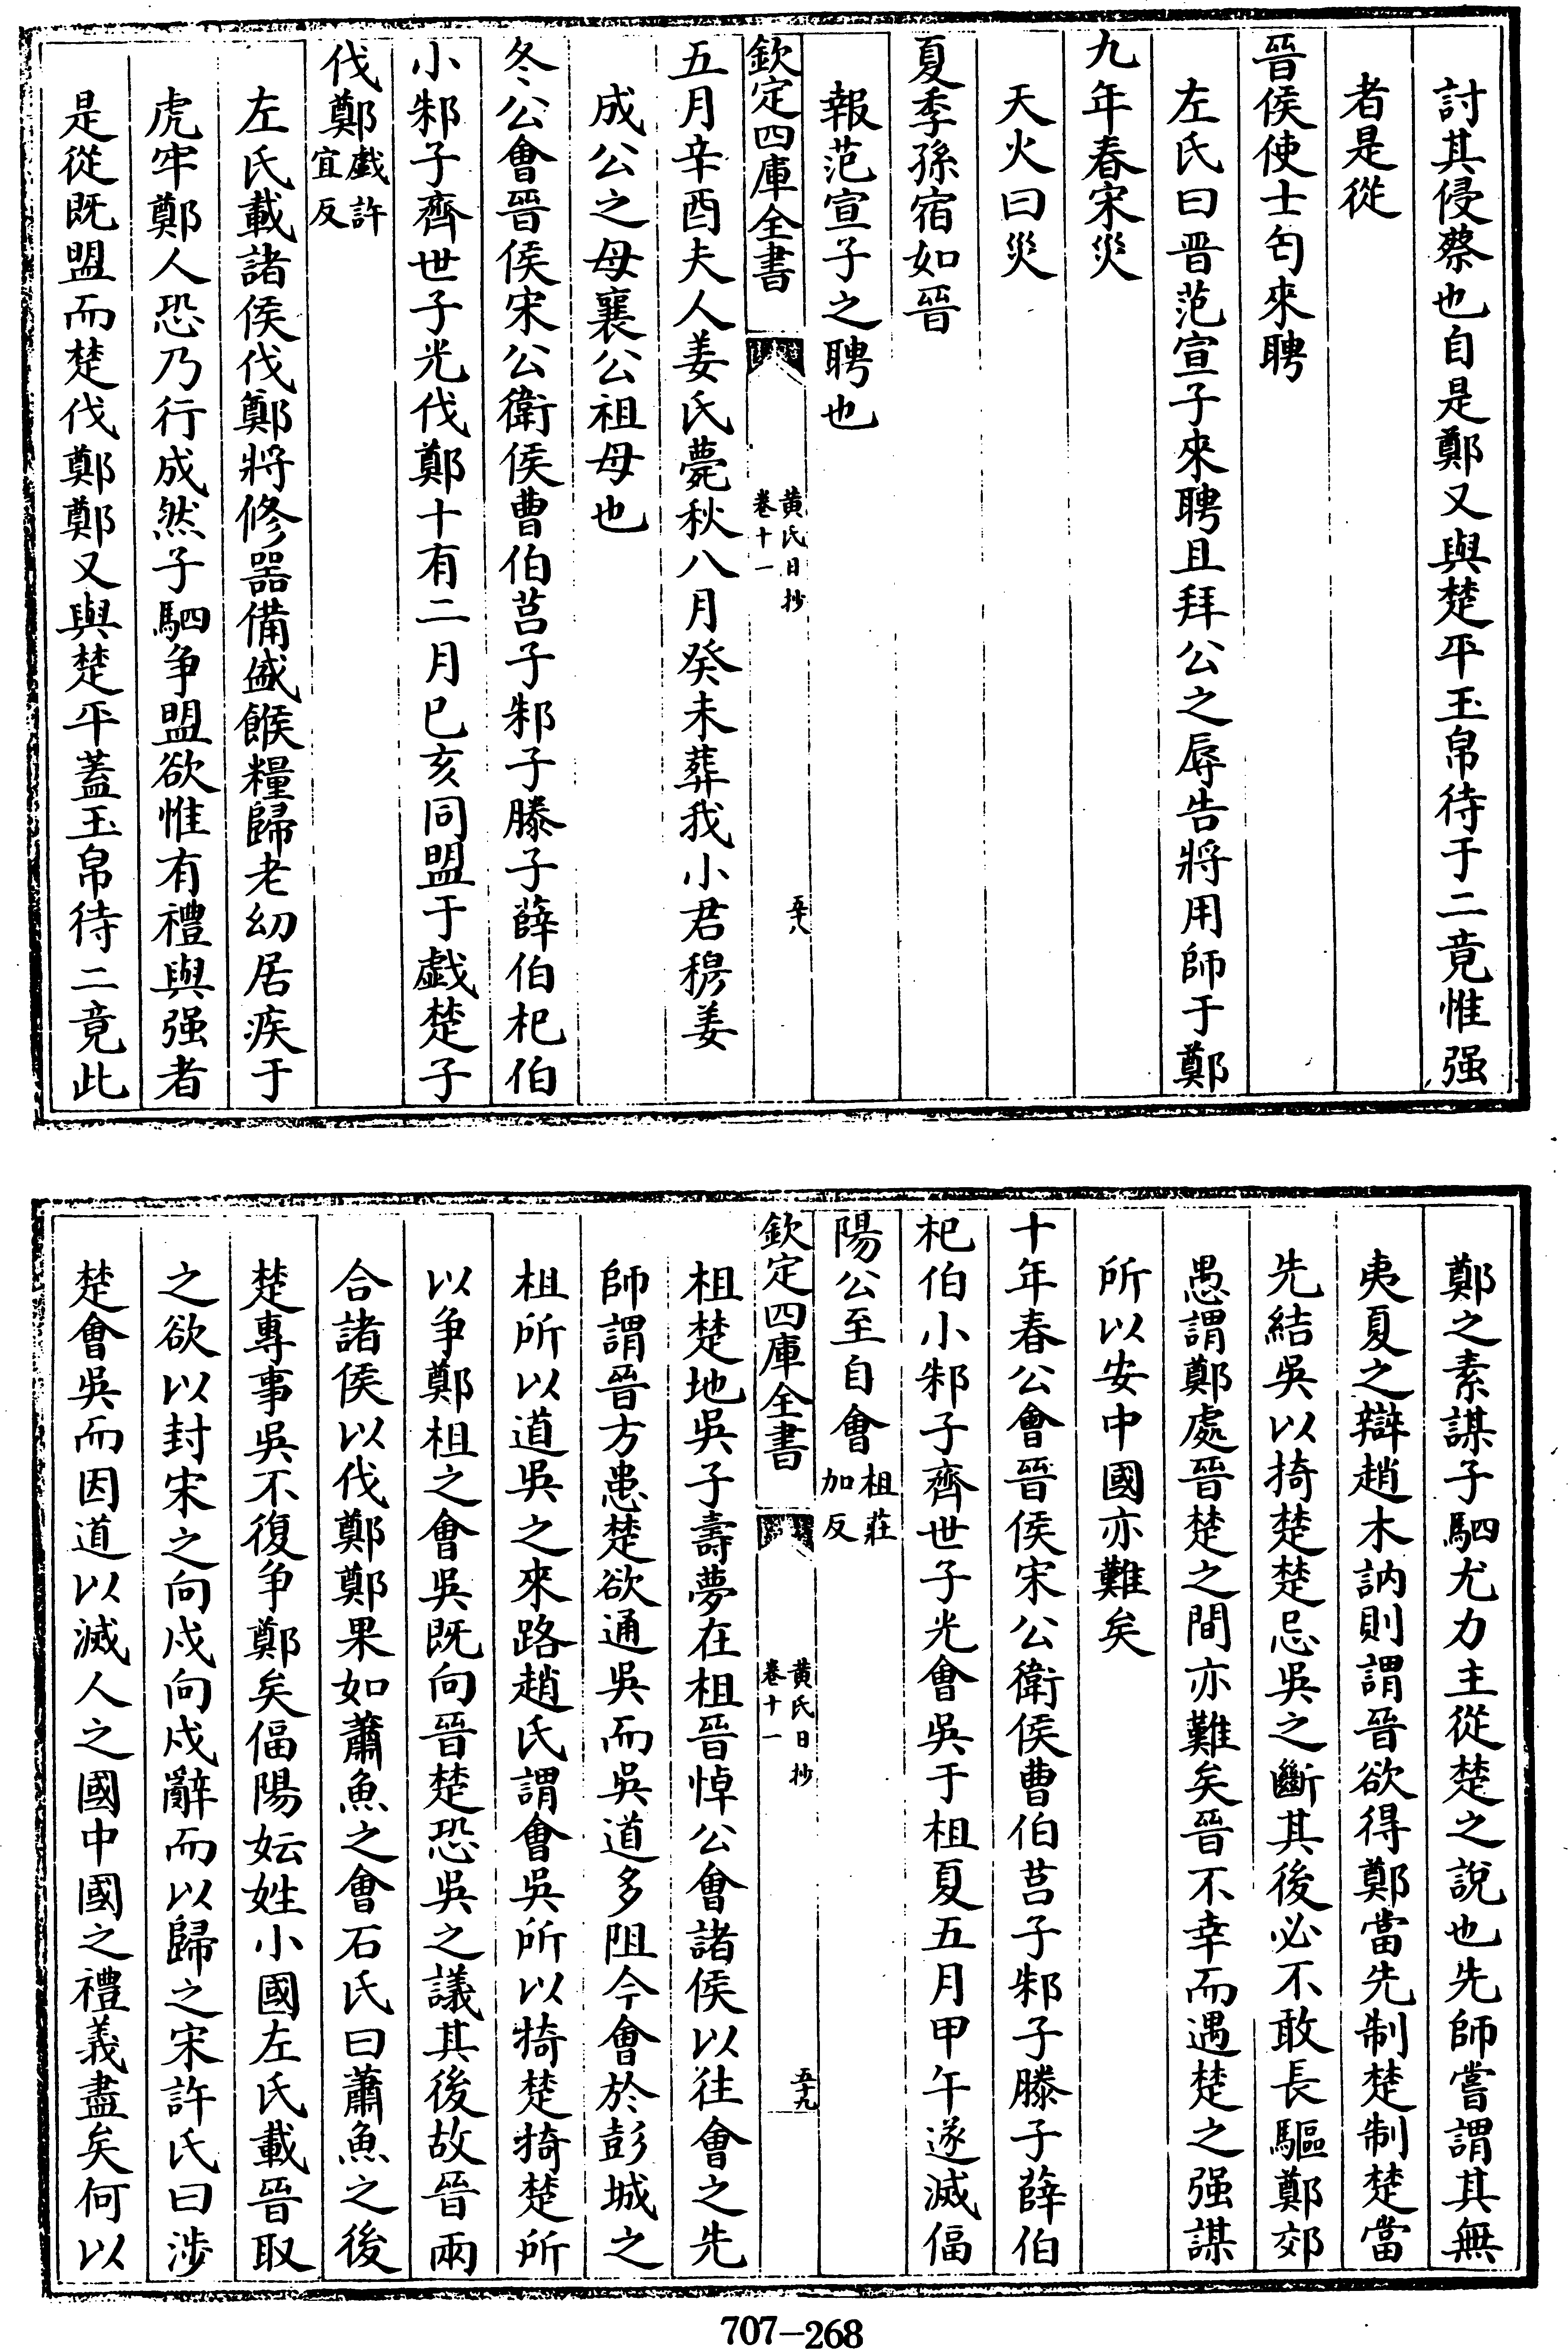 討其侵蔡也自是鄭又與楚平玉帛待于二竟惟强
者是從
晉侯使士匄來聘
左氏曰晋范宣子來聘且拜公之辱告將用師于鄭
九年春宋災
天火曰災
夏季孫宿如晉
報范宣子之聘也
欽定四庫全書
黄氏日抄
卷十一
五十八
五月辛酉夫人姜氏薨秋八月癸未葬我小君穆姜
成公之母襄公祖母也
冬公會晉侯宋公衛侯曹伯莒子邾子滕子薛伯杞伯
小邾子齊世子光伐鄭十有二月已亥同盟于戯楚子
伐鄭戯許宜反
左氏載諸侯伐鄭將修器備盛餱糧歸老幼居疾于
虎牢鄭人恐乃行成然子駟争盟欲惟有禮與强者
是從既盟而楚伐鄭鄭又與楚平蓋玉帛待二竟此
鄭之素謀子駟尤力主從楚之說也先師嘗謂其無
夷夏之辯趙木訥則謂晉欲得鄭當先制楚制楚當
先結吳以掎楚楚忌吳之斷其後必不敢長驅鄭郊
愚謂鄭處晉楚之間亦難矣晉不幸而遇楚之强謀
所以安中國亦難矣
十年春公會晉侯宋公衛侯曹伯莒子邾子滕子薛伯
杞伯小邾子齊世子光會吳于柤夏五月甲午遂滅偪
陽公至自會柤莊加反
欽定四庫全書
黄氏日抄
卷十一
五十九
柤楚地吳子壽夢在柤晉悼公會諸侯以往會之先
師謂晉方患楚欲通吳而吳道多阻今會於彭城之
柤所以道吳之來路趙氏謂會吳所以犄楚犄楚所
以争鄭柤之會吳既向晉楚恐吳之議其後故晉兩
合諸侯以伐鄭鄭果如蕭魚之會石氏曰蕭魚之後
楚專事吳不復争鄭矣偪陽妘姓小國左氏載晉取
之欲以封宋之向戍向戍辭而以歸之宋許氏曰涉
楚會吳而因道以滅人之國中國之禮義盡矣何以
707-268